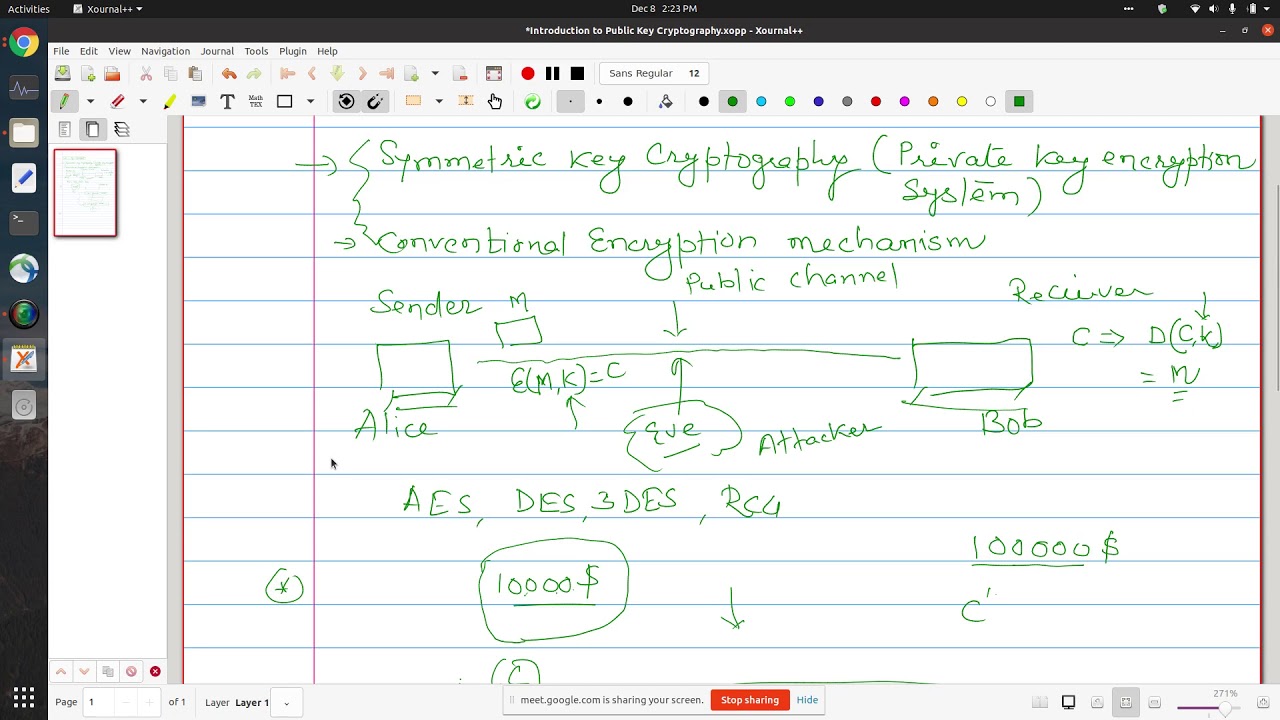 Activities
Xournal++
Dec 8 2:23 PM
*Introduction to Public Key Cryptography.xopp - Xournal++
File Edit View Navigation Journal Tools Plugin Help
Sans Regular 12
Math TEX
→ Symmetric key Cryptography (Private key encryption
System)
→ Conventional Encryption mechanism
Public channel
Sender M
Reciever
C ⇒ D(C,K)
E(M,K)=C
= M
Alice
Eve
Attacker
Bob
AES, DES, 3DES, RC4
10000$
100000$
*
C'
C
Page 1 of 1 Layer Layer 1
meet.google.com is sharing your screen. Stop sharing Hide
271%